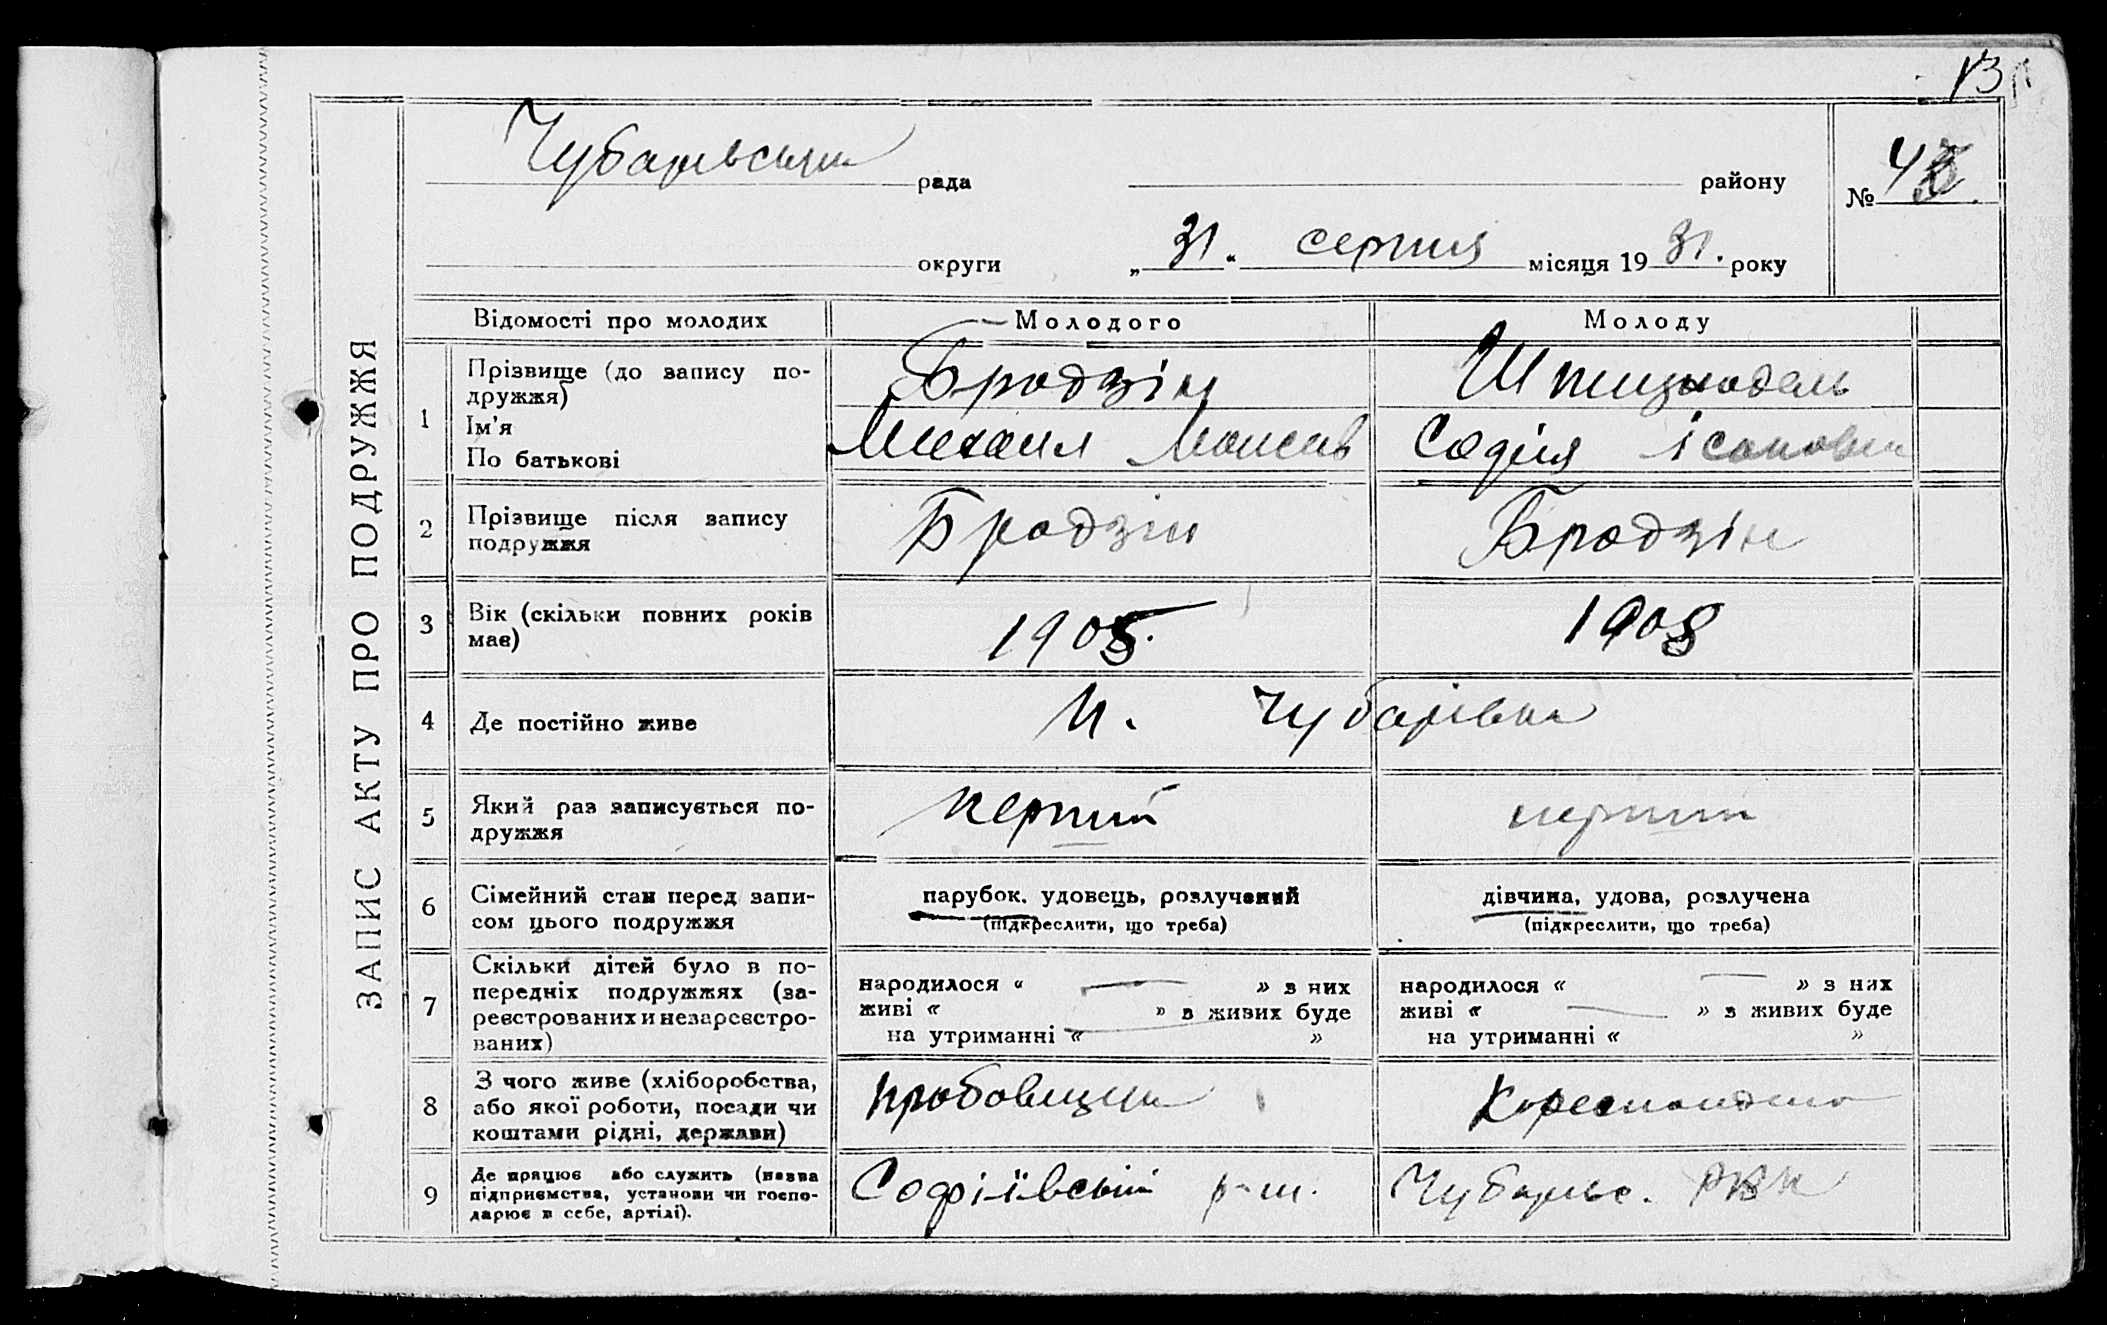 13
Чубарівська рада району № 4
округи „31“ серпня місяця 1931. року
ЗАПИС АКТУ ПРО ПОДРУЖЖЯ
Відомості про молодих Молодого Молоду
1 Прізвище (до запису по-
дружжя)
Ім'я
По батькові
Бродзін
Михаил Моисеів
Софія Ісаковна
2 Прізвище після запису
подружжя
Бродзін Бродзін
3 Вік (скільки повних років
має)
1905. 1908
4 Де постійно живе
Чубарівка
5 Який раз записується по-
дружжя
перший перший
6 Сімейний стан перед запи-
сом цього подружжя
парубок, удовець, розлучений
(підкреслити, що треба)
дівчина, удова, розлучена
(підкреслити, що треба)
7 Скільки дітей було в по-
передніх подружжях (за-
реєстрованих и незареєстро-
ваних)
народилося “ — » з них
живі “ » з живих буде
на утриманні “ — »
народилося “ — » з них
живі “ — » з живих буде
на утриманні “ »
8 З чого живе (хліборобства,
або якої роботи, посади чи
коштами рідні, держави)
9 Де працює або служить (назва
підприємства, установи чи госпо-
дарює в себе, артілі).
Софіївській р-ш.
Чубарівс. РВК